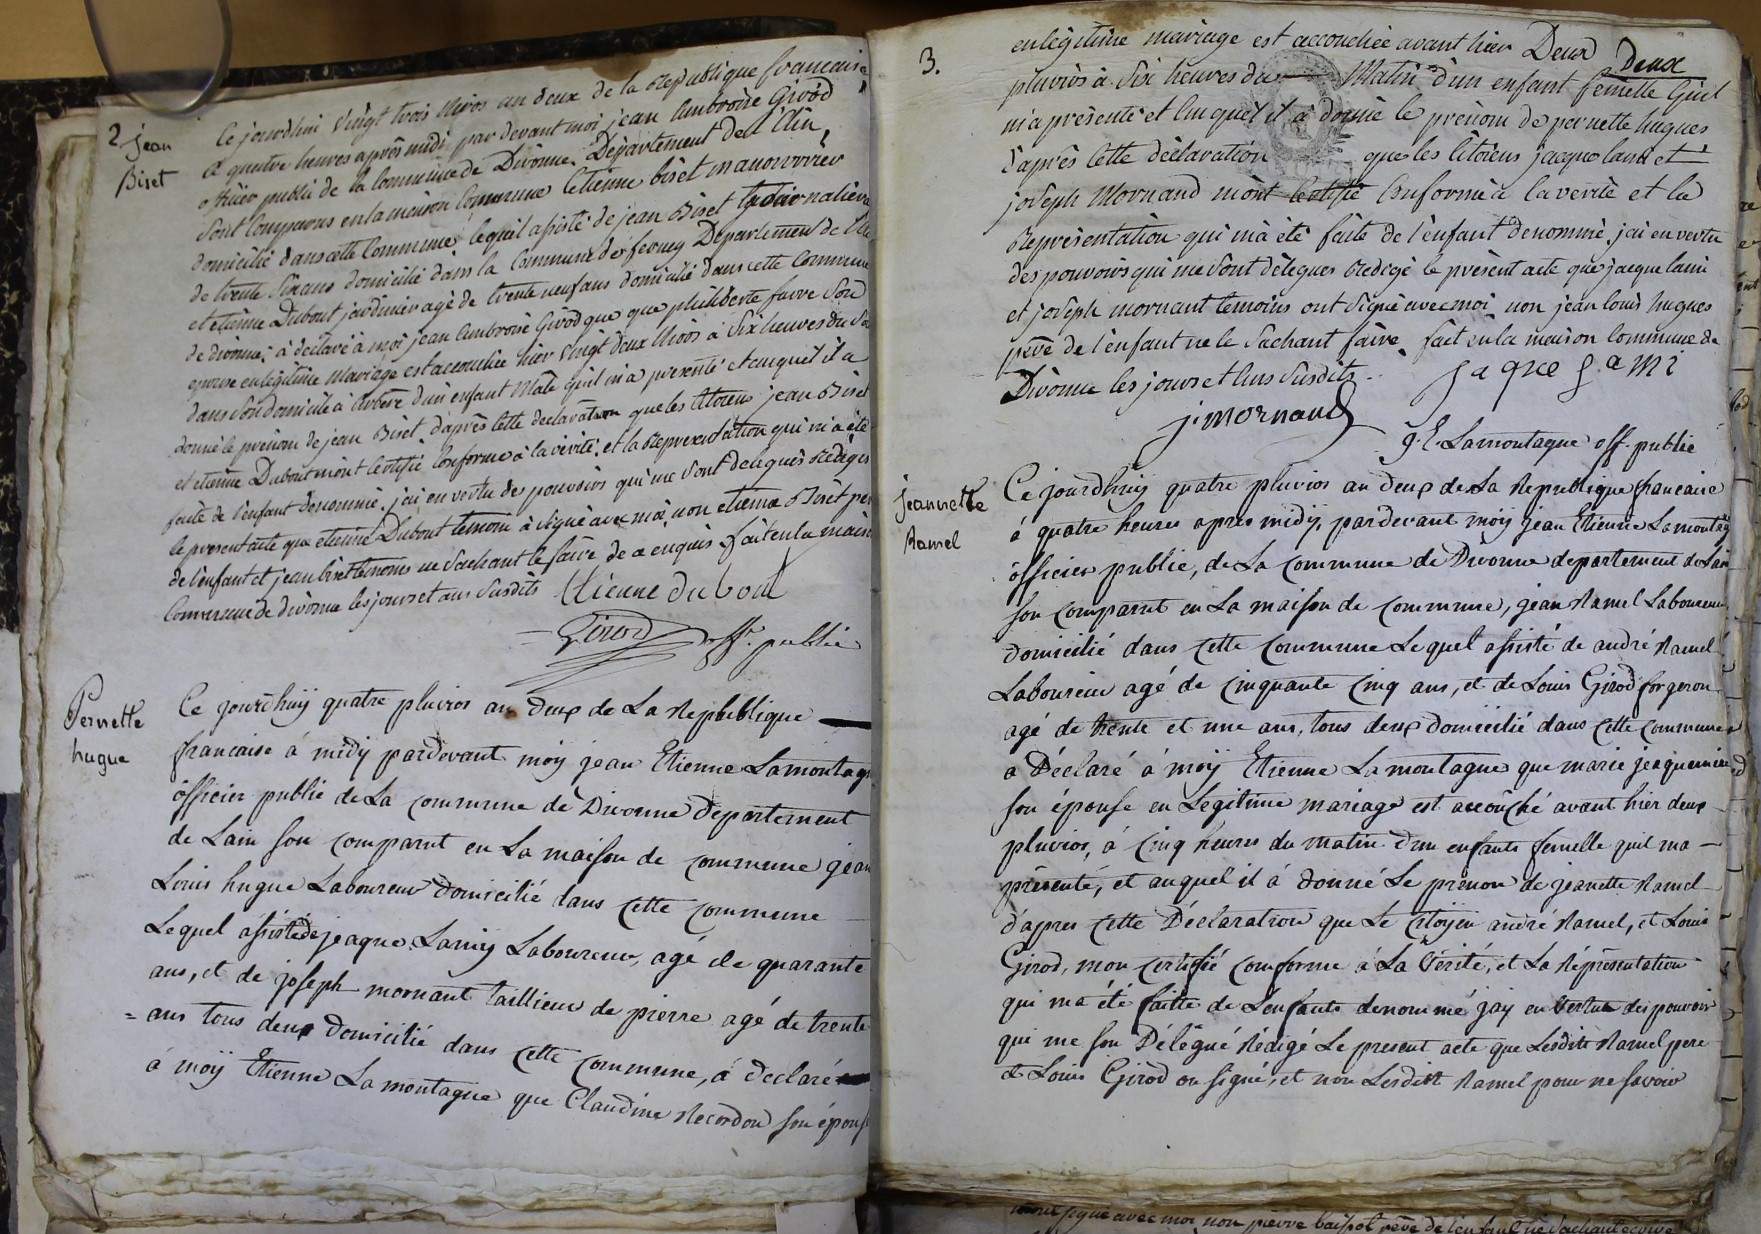 2 jean
Biset
Ce jourdhui vingt trois Nivos an deux de la Republique francaise
a quatre heures après midi par devant moi jean ambroise Girod
officier public de la Commune de Divonne Département de l'Ain,
Sont Comparus en la maison Commune Etienne biset manouvrier
domicilié dans cette Commune lequel assisté de jean Biset
de trente six ans domicilié dans la Commune de ferney Département de l'Ain
et etienne Dubout jardinier agé de trente neuf ans domicilié dans cette Commune
de divonne, à déclaré à moi jean Ambroise Girod que que philiberte favre Son
epouse en légitime Mariage est accouchée hier vingt deux Nivos à Six heures du Soir
dans Son domicile à d'un enfant Mâle qu'il m'a présenté et auquel il a
donné le prénom de jean Biset d'après cette déclaration que les Citoiens jean Biset
et etienne Dubout m'ont Certifié Conforme à la vérité, et la Représentation qui m'a été
faite de l'enfant dénommé, j'ai en vertu des pouvoirs qui me Sont délégués Rédigés
le present acte que etienne Dubout temoin à Signé avec moi, non etienne Biset pere
de l'enfant et jean biset temoins ne Sachant le faire de ce enquis fait en la maison
Commune de divonne les jours et ans Susdits Etienne dubout
Girod off. public
Pernette
hugue
Ce jourdhuij quatre pluvios an deux de La Republique
francaise à midÿ pardevant moÿ jean Etienne Lamontagne
officier public de La commune de Divonne departement
de Lain son comparut en La maison de commune jean
Louis hugue Laboureur domicilié dans cette commune
Lequel assisté de jeaque Lamÿ Laboureur, agé de quarante
ans, et de joseph mornant taillieur de pierre agé de trente
= ans tous deux domicilié dans cette commune, a déclaré
à moÿ Etienne La montagne que Claudine Recordon son épouse
3.
Deux
en légitime mariage est accouchée avant hier Deux
pluviôs à Six heures du Matin d'un enfant femelle qu'il
m'a présenté et auquel il à donné le prénom de pernette hugues
d'après Cette déclaration que les Citoiens jacque lami et
joseph Mornand m'ont Certifié Conforme à la verité et la
Représentation qui m'a été faite de l'enfant denommé, j'ai en vertu
des pouvoirs qui me Sont délegues Redigé le présent acte que jacque lami
et joseph mornant temoins ont Signé avec moi non jean louis hugues
père de l'enfant ne le Sachant faire, fait en la maison Commune de
Divonne les jours et ans Susdits. jaque Lami
j. mornand
J. E. Lamontague off. public
jeannette
Ramel
Ce jourdhuij quatre pluvios an deux de La Republique francaise
à quatre heures apres midÿ, pardevant moÿ jean Etienne Lamontagne
officier public, de La commune de Divonne departement de Lain
son comparut en La maison de commune, jean Ramel Laboureur,
domicilié dans cette commune Lequel assisté de andré Ramel
Laboureur agé de cinquante cinq ans, et de Louis Girod forgeron
agé de trente et une ans, tous deux domicilié dans cette commune
a Déclaré à moÿ Etienne La montagne que marie
son épouse en Legitime mariage est accouché avant hier deux
pluvios, à cinq heures du matin d'un enfants femelle quil ma
présenté, et auquel il à donné Le prenon de jeanette Ramel
d'apres cette Déclaration que Le citoÿen andré Ramel, et Louis
Girod, mon certifié comforme à La Vérité, et La Réprésentation
qui ma été faitte de L'enfants denommé jaÿ en Vertue des pouvoir
qui me son Délégué Rédigé Le present acte que Lesdits Ramel pere
et Louis Girod on signé, et non Lesdits Ramel pour ne savoir